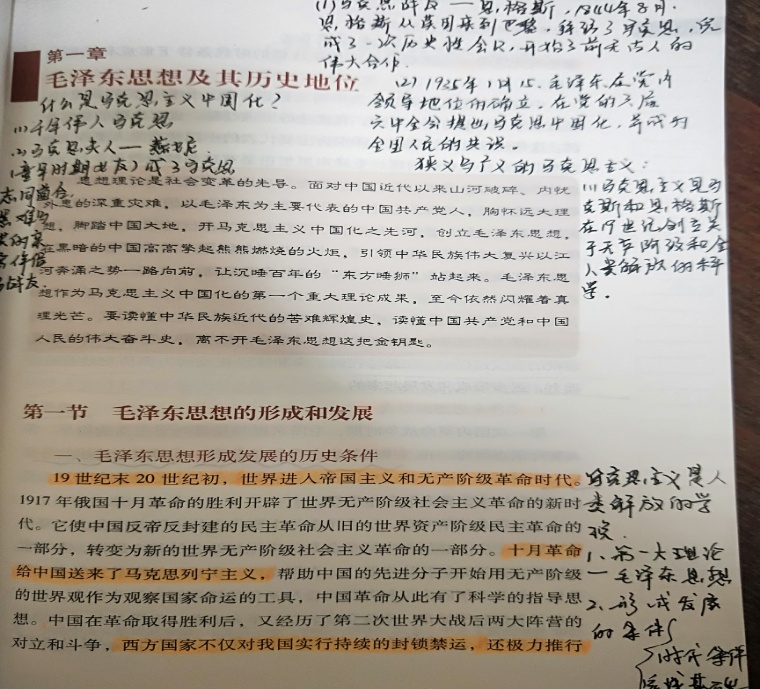 (1)马克思战友——恩格斯，1844年8月.
恩格斯从英国来到巴黎，拜访了马克思，完
成了一次历史性会见，开始了前无古人的
伟大合作.
第一章
毛泽东思想及其历史地位
(2) 1935年1月15.毛泽东在党内
领导地位的确立，在党的六届
六中全会提出马克思中国化，并成为
全国人民的共识。
什么是马克思主义中国化？
(1)千年伟人马克思
(2)马克思夫人——燕妮
(青年时期
成了马克思
志同道合
狭义与广义的马克思主义：
(1)马克思主义是马
克斯和恩格斯
在19世纪创立关
于无产阶级和全
人类解放的科
学。
思想理论是社会变革的先导。面对中国近代以来山河破碎、内忧
外患的深重灾难，以毛泽东为主要代表的中国共产党人，胸怀远大理
想，脚踏中国大地，开马克思主义中国化之先河，创立毛泽东思想，
在黑暗的中国高高擎起熊熊燃烧的火炬，引领中华民族伟大复兴以江
河奔涌之势一路向前，让沉睡百年的“东方睡狮”站起来。毛泽东思
想作为马克思主义中国化的第一个重大理论成果，至今依然闪耀着真
理光芒。要读懂中华民族近代的苦难辉煌史，读懂中国共产党和中国
人民的伟大奋斗史，离不开毛泽东思想这把金钥匙。
第一节 毛泽东思想的形成和发展
一、毛泽东思想形成发展的历史条件
19世纪末20世纪初，世界进入帝国主义和无产阶级革命时代。
1917年俄国十月革命的胜利开辟了世界无产阶级社会主义革命的新时
代。它使中国反帝反封建的民主革命从旧的世界资产阶级民主革命的
一部分，转变为新的世界无产阶级社会主义革命的一部分。十月革命
给中国送来了马克思列宁主义，帮助中国的先进分子开始用无产阶级
的世界观作为观察国家命运的工具，中国革命从此有了科学的指导思
想。中国在革命取得胜利后，又经历了第二次世界大战后两大阵营的
对立和斗争，西方国家不仅对我国实行持续的封锁禁运，还极力推行
马克思主义是人
类解放的学
说.
1、第一大理论
—毛泽东思想
2、形成发展
的条件
时代条件